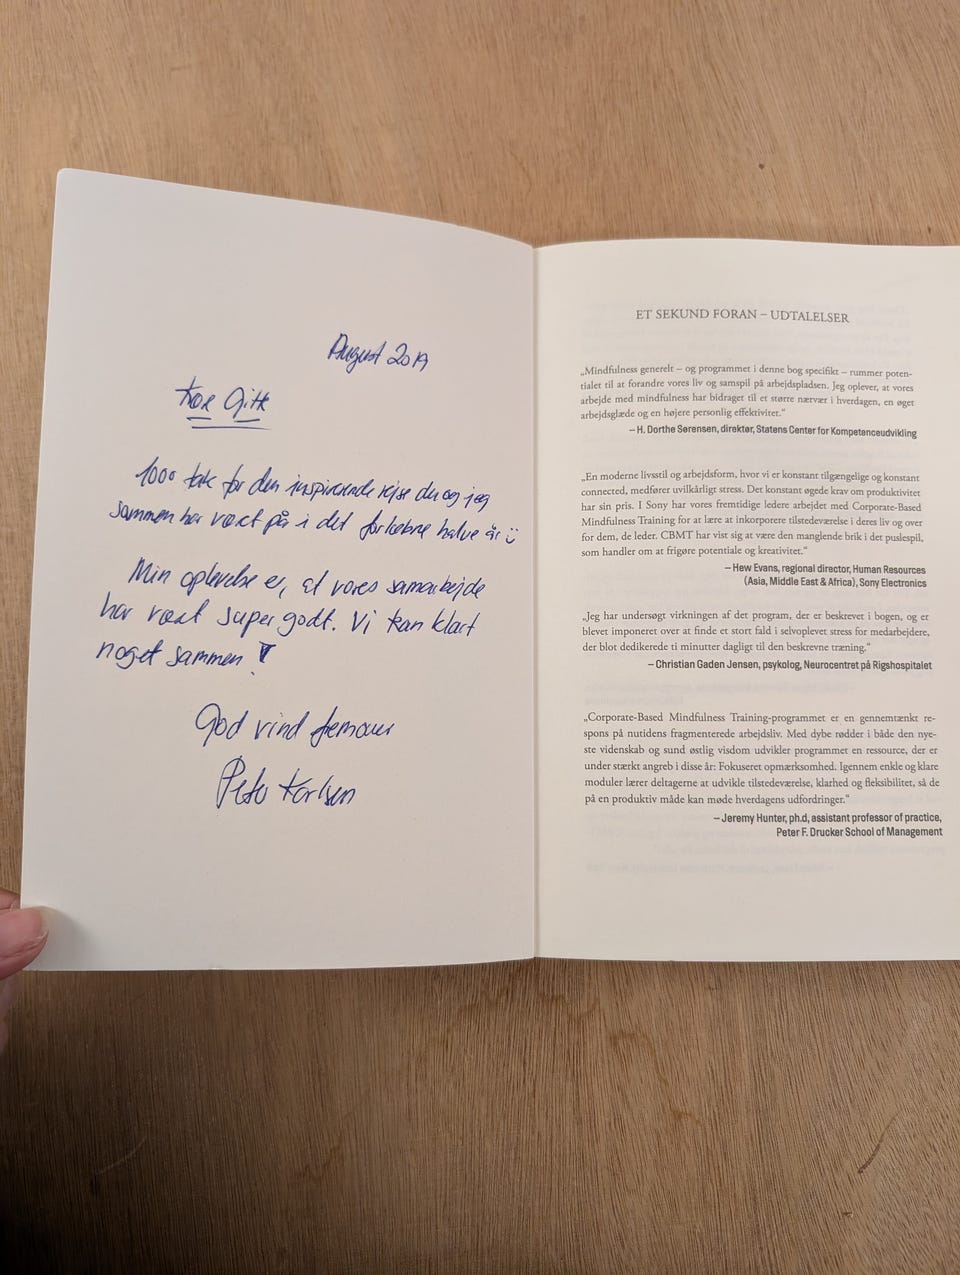 August 2019
Kære Gitte
1000 tak for den inspirerende rejse du og jeg
sammen har været på i det forløbne halve år
Min oplevelse er, at vores samarbejde
har været super godt. Vi kan klart
noget sammen!
God vind fremover
Peter Karlsen
ET SEKUND FORAN – UDTALELSER
„Mindfulness generelt – og programmet i denne bog specifikt – rummer poten-
tialet til at forandre vores liv og samspil på arbejdspladsen. Jeg oplever, at vores
arbejde med mindfulness har bidraget til et større nærvær i hverdagen, en øget
arbejdsglæde og en højere personlig effektivitet.“
– H. Dorthe Sørensen, direktør, Statens Center for Kompetenceudvikling
„En moderne livsstil og arbejdsform, hvor vi er konstant tilgængelige og konstant
connected, medfører uvilkårligt stress. Det konstant øgede krav om produktivitet
har sin pris. I Sony har vores fremtidige ledere arbejdet med Corporate-Based
Mindfulness Training for at lære at inkorporere tilstedeværelse i deres liv og over
for dem, de leder. CBMT har vist sig at være den manglende brik i det puslespil,
som handler om at frigøre potentiale og kreativitet.“
– Hew Evans, regional director, Human Resources
(Asia, Middle East & Africa), Sony Electronics
„Jeg har undersøgt virkningen af det program, der er beskrevet i bogen, og er
blevet imponeret over at finde et stort fald i selvoplevet stress for medarbejdere,
der blot dedikerede ti minutter dagligt til den beskrevne træning.“
– Christian Gaden Jensen, psykolog, Neurocentret på Rigshospitalet
„Corporate-Based Mindfulness Training-programmet er en gennemtænkt re-
spons på nutidens fragmenterede arbejdsliv. Med dybe rødder i både den nye-
ste videnskab og sund østlig visdom udvikler programmet en ressource, der er
under stærkt angreb i disse år: Fokuseret opmærksomhed. Igennem enkle og klare
moduler lærer deltagerne at udvikle tilstedeværelse, klarhed og fleksibilitet, så de
på en produktiv måde kan møde hverdagens udfordringer.“
– Jeremy Hunter, ph.d, assistant professor of practice,
Peter F. Drucker School of Management